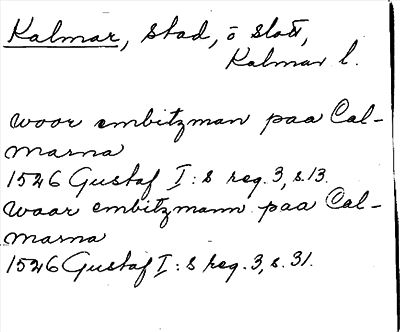 Kalmar, stad, o slott,
Kalmar l.
woor embitzman paa Cal-
marna
1526 Gustaf I:s reg. 3, s. 13.
waar embitzmann paa Cal-
marna
1526 Gustaf I:s reg. 3, s. 31.